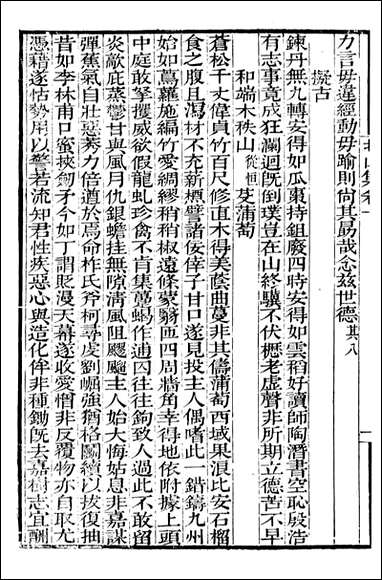 力言毋違經動毋踰則尚其勗哉念兹世德其八
擬古
鍊丹無九轉安得如瓜棗持鉏廢四時安得如雲稻好讀師陶潛書空恥殷浩
有志事竟成狂瀾迴既倒璞豈在山終驥不伏櫪老虛聲非所期立德苦不早
和端木秩山從恒芟蒲萄
蒼松千丈偉貞竹百尺修直木得美蔭曲蔓非其儔蒲萄西域果浪比安石榴
食之腹且瀉材不充新槱譬諸佞倖子甘口遂見投主人偶嗜此一錯鑄九州
始如蔦蘿施緣竹愛綢繆稍稍椒遠條蒙翳匝四周牆角幸得地依附據上頭
中庭敢拏攫威欲假龍虬珍禽不肯集蔓蝎作逋囚往往鉤致人過此不敢留
炎歊庇蒸鬱甘與風月仇銀蟾挂無隙清風阻颼飀主人始大悔姑息非嘉謀
彈蕉氣自壯惡莠力倍遒於焉命柞氏斧柯尋虔劉崛強猶格鬬續以拔復抽
昔如李林甫口蜜挾劒矛今如丁謂財漫天幕遂收愛憎非反覆物亦自取尤
憑藉遂怙勢屏以警若流知君性疾惡心與造化侔非種鋤既去嘉樹志宜酬